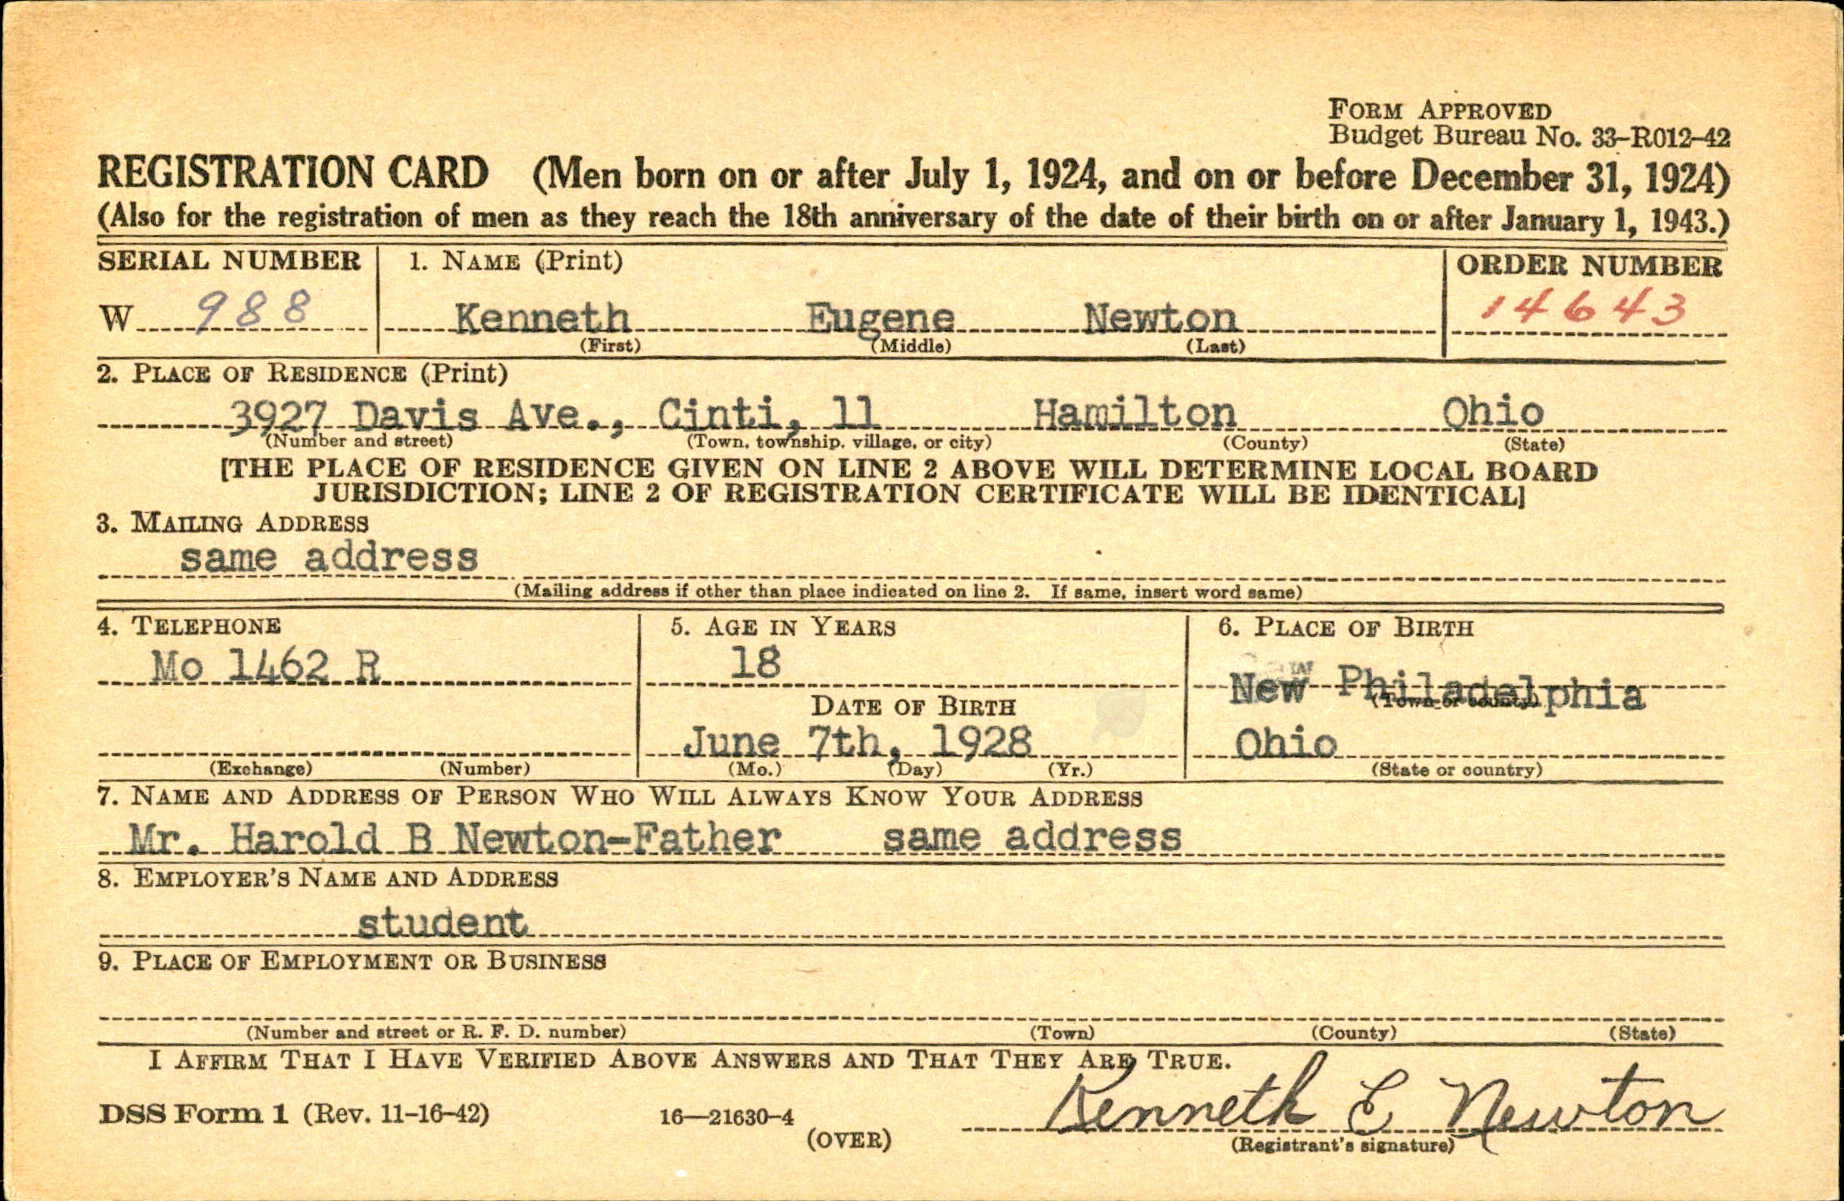 FORM APPROVED
Budget Bureau No. 33-R012-42
REGISTRATION CARD (Men born on or after July 1, 1924, and on or before December 31, 1924)
(Also for the registration of men as they reach the 18th anniversary of the date of their birth on or after January 1, 1943.)
SERIAL NUMBER 1. NAME (Print) ORDER NUMBER
W 988 Kenneth Eugene Newton 14643
(First) (Middle) (Last)
2. PLACE OF RESIDENCE (Print)
3927 Davis Ave., Cinti, 11 Hamilton Ohio
(Number and street) (Town, township, village, or city) (County) (State)
[THE PLACE OF RESIDENCE GIVEN ON LINE 2 ABOVE WILL DETERMINE LOCAL BOARD
JURISDICTION; LINE 2 OF REGISTRATION CERTIFICATE WILL BE IDENTICAL]
3. MAILING ADDRESS
same address
(Mailing address if other than place indicated on line 2. If same, insert word same)
4. TELEPHONE 5. AGE IN YEARS 6. PLACE OF BIRTH
Mo 1462 R 18 New Philadelphia
(Town or county)
DATE OF BIRTH
June 7th, 1928 Ohio
(Exchange) (Number) (Mo.) (Day) (Yr.) (State or country)
7. NAME AND ADDRESS OF PERSON WHO WILL ALWAYS KNOW YOUR ADDRESS
Mr. Harold B Newton-Father same address
8. EMPLOYER'S NAME AND ADDRESS
student
9. PLACE OF EMPLOYMENT OR BUSINESS
(Number and street or R. F. D. number) (Town) (County) (State)
I AFFIRM THAT I HAVE VERIFIED ABOVE ANSWERS AND THAT THEY ARE TRUE.
DSS Form 1 (Rev. 11-16-42) 16—21630-4 Kenneth E Newton
(OVER) (Registrant's signature)